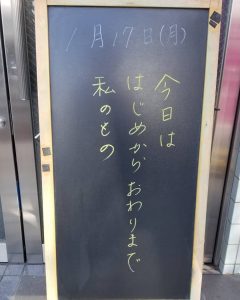 1月17日(月)
今日は
はじめから おわりまで
私のもの